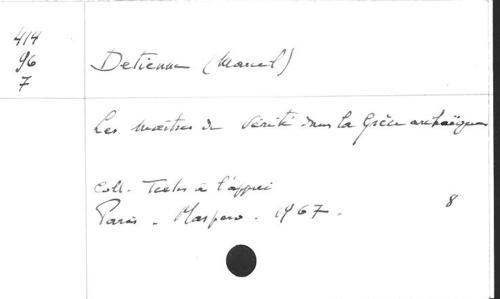 414
96
7
Detienne (Marcel)
Les maîtres de Vérité dans la Grèce archaïque
Coll. Textes à l'appui
Paris - Maspero - 1967.
8